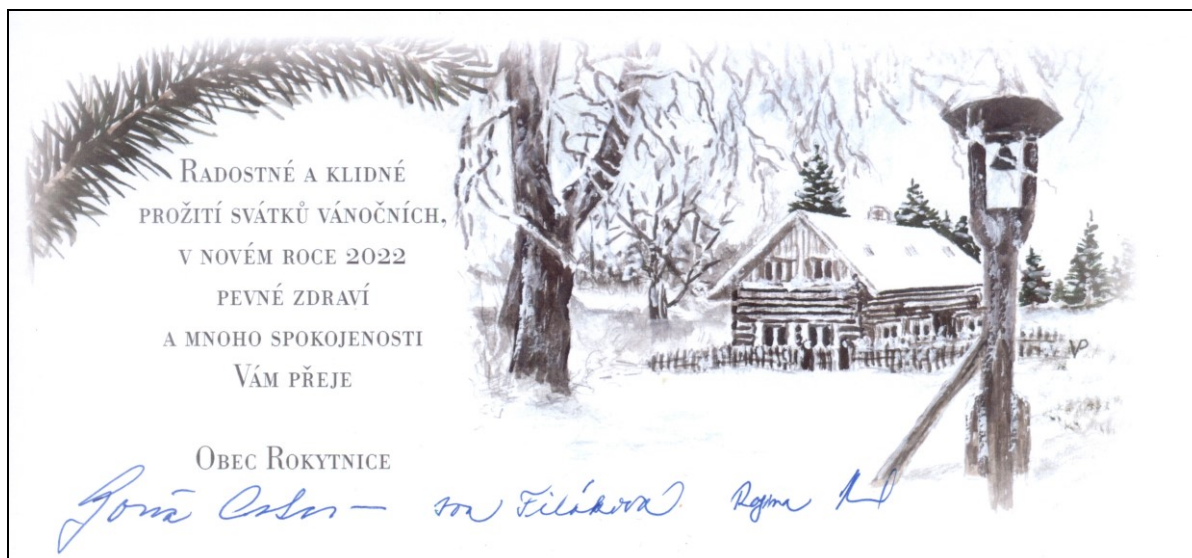 Radostné a klidné
prožití svátků vánočních,
v novém roce 2022
pevné zdraví
a mnoho spokojenosti
Vám přeje
Obec Rokytnice
Filáková
VP